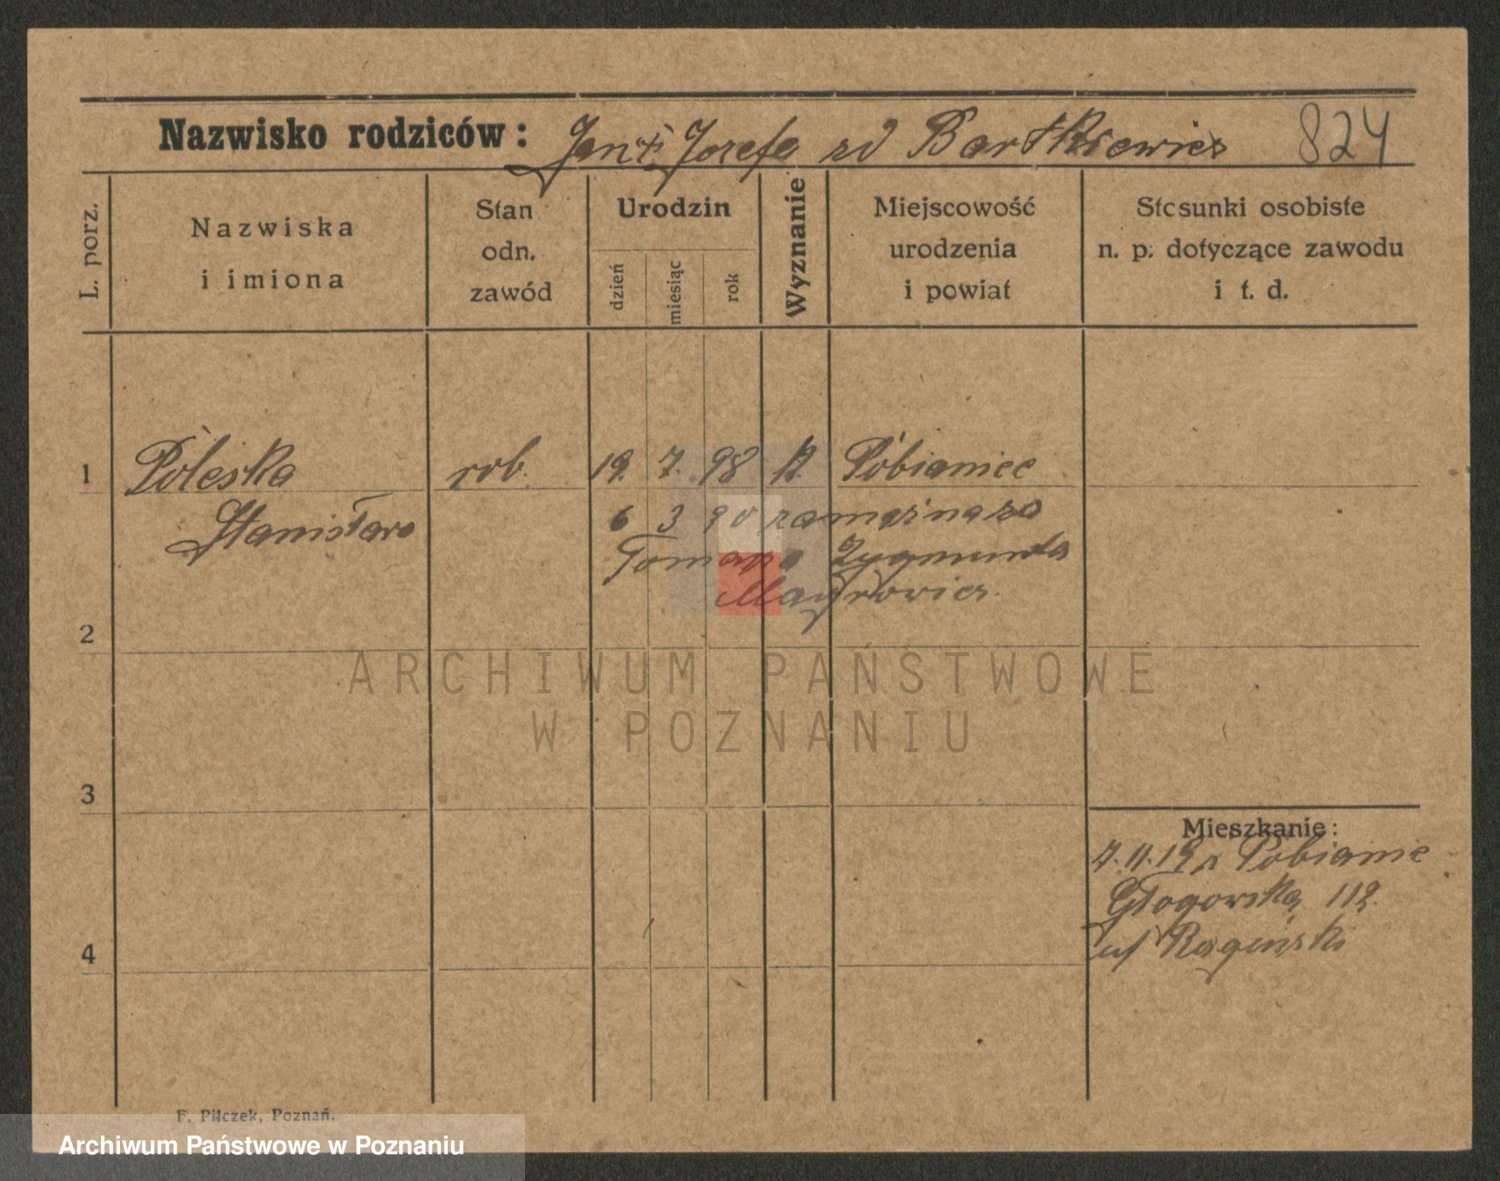 Nazwisko rodziców: Jan i Józefa zd Bartkiewicz 824
L. porz.
Nazwiska i imiona
Stan odn. zawód
Urodzin
dzień miesiąc rok
Wyznanie
Miejscowość urodzenia i powiat
Stosunki osobiste n. p. dotyczące zawodu i t. d.
1 Poleska rob. 19. 7. 98 k. Pobianice
Stanisława 6 3 90 zamężna za
Tomasza Zygmunta
2
3
Mieszkanie:
7.11.19 z Pobianic
Głogowska 112.
4 u/ Rogiński
F. Pilczek, Poznań.
ARCHIWUM PAŃSTWOWE
W POZNANIU
Archiwum Państwowe w Poznaniu